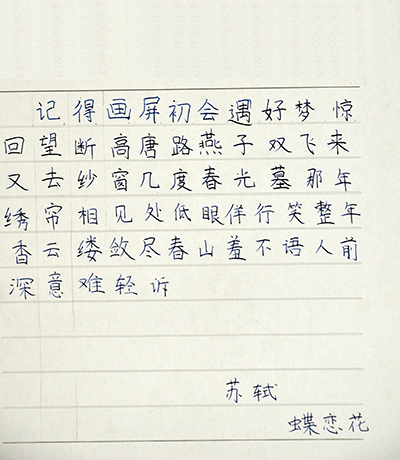 记得画屏初会遇好梦惊
回望断高唐路燕子双飞来
又去纱窗几度春光墓那年
绣帘相见处低眼佯行笑整年
香云缕敛尽春山羞不语人前
深意难轻诉
苏轼
蝶恋花